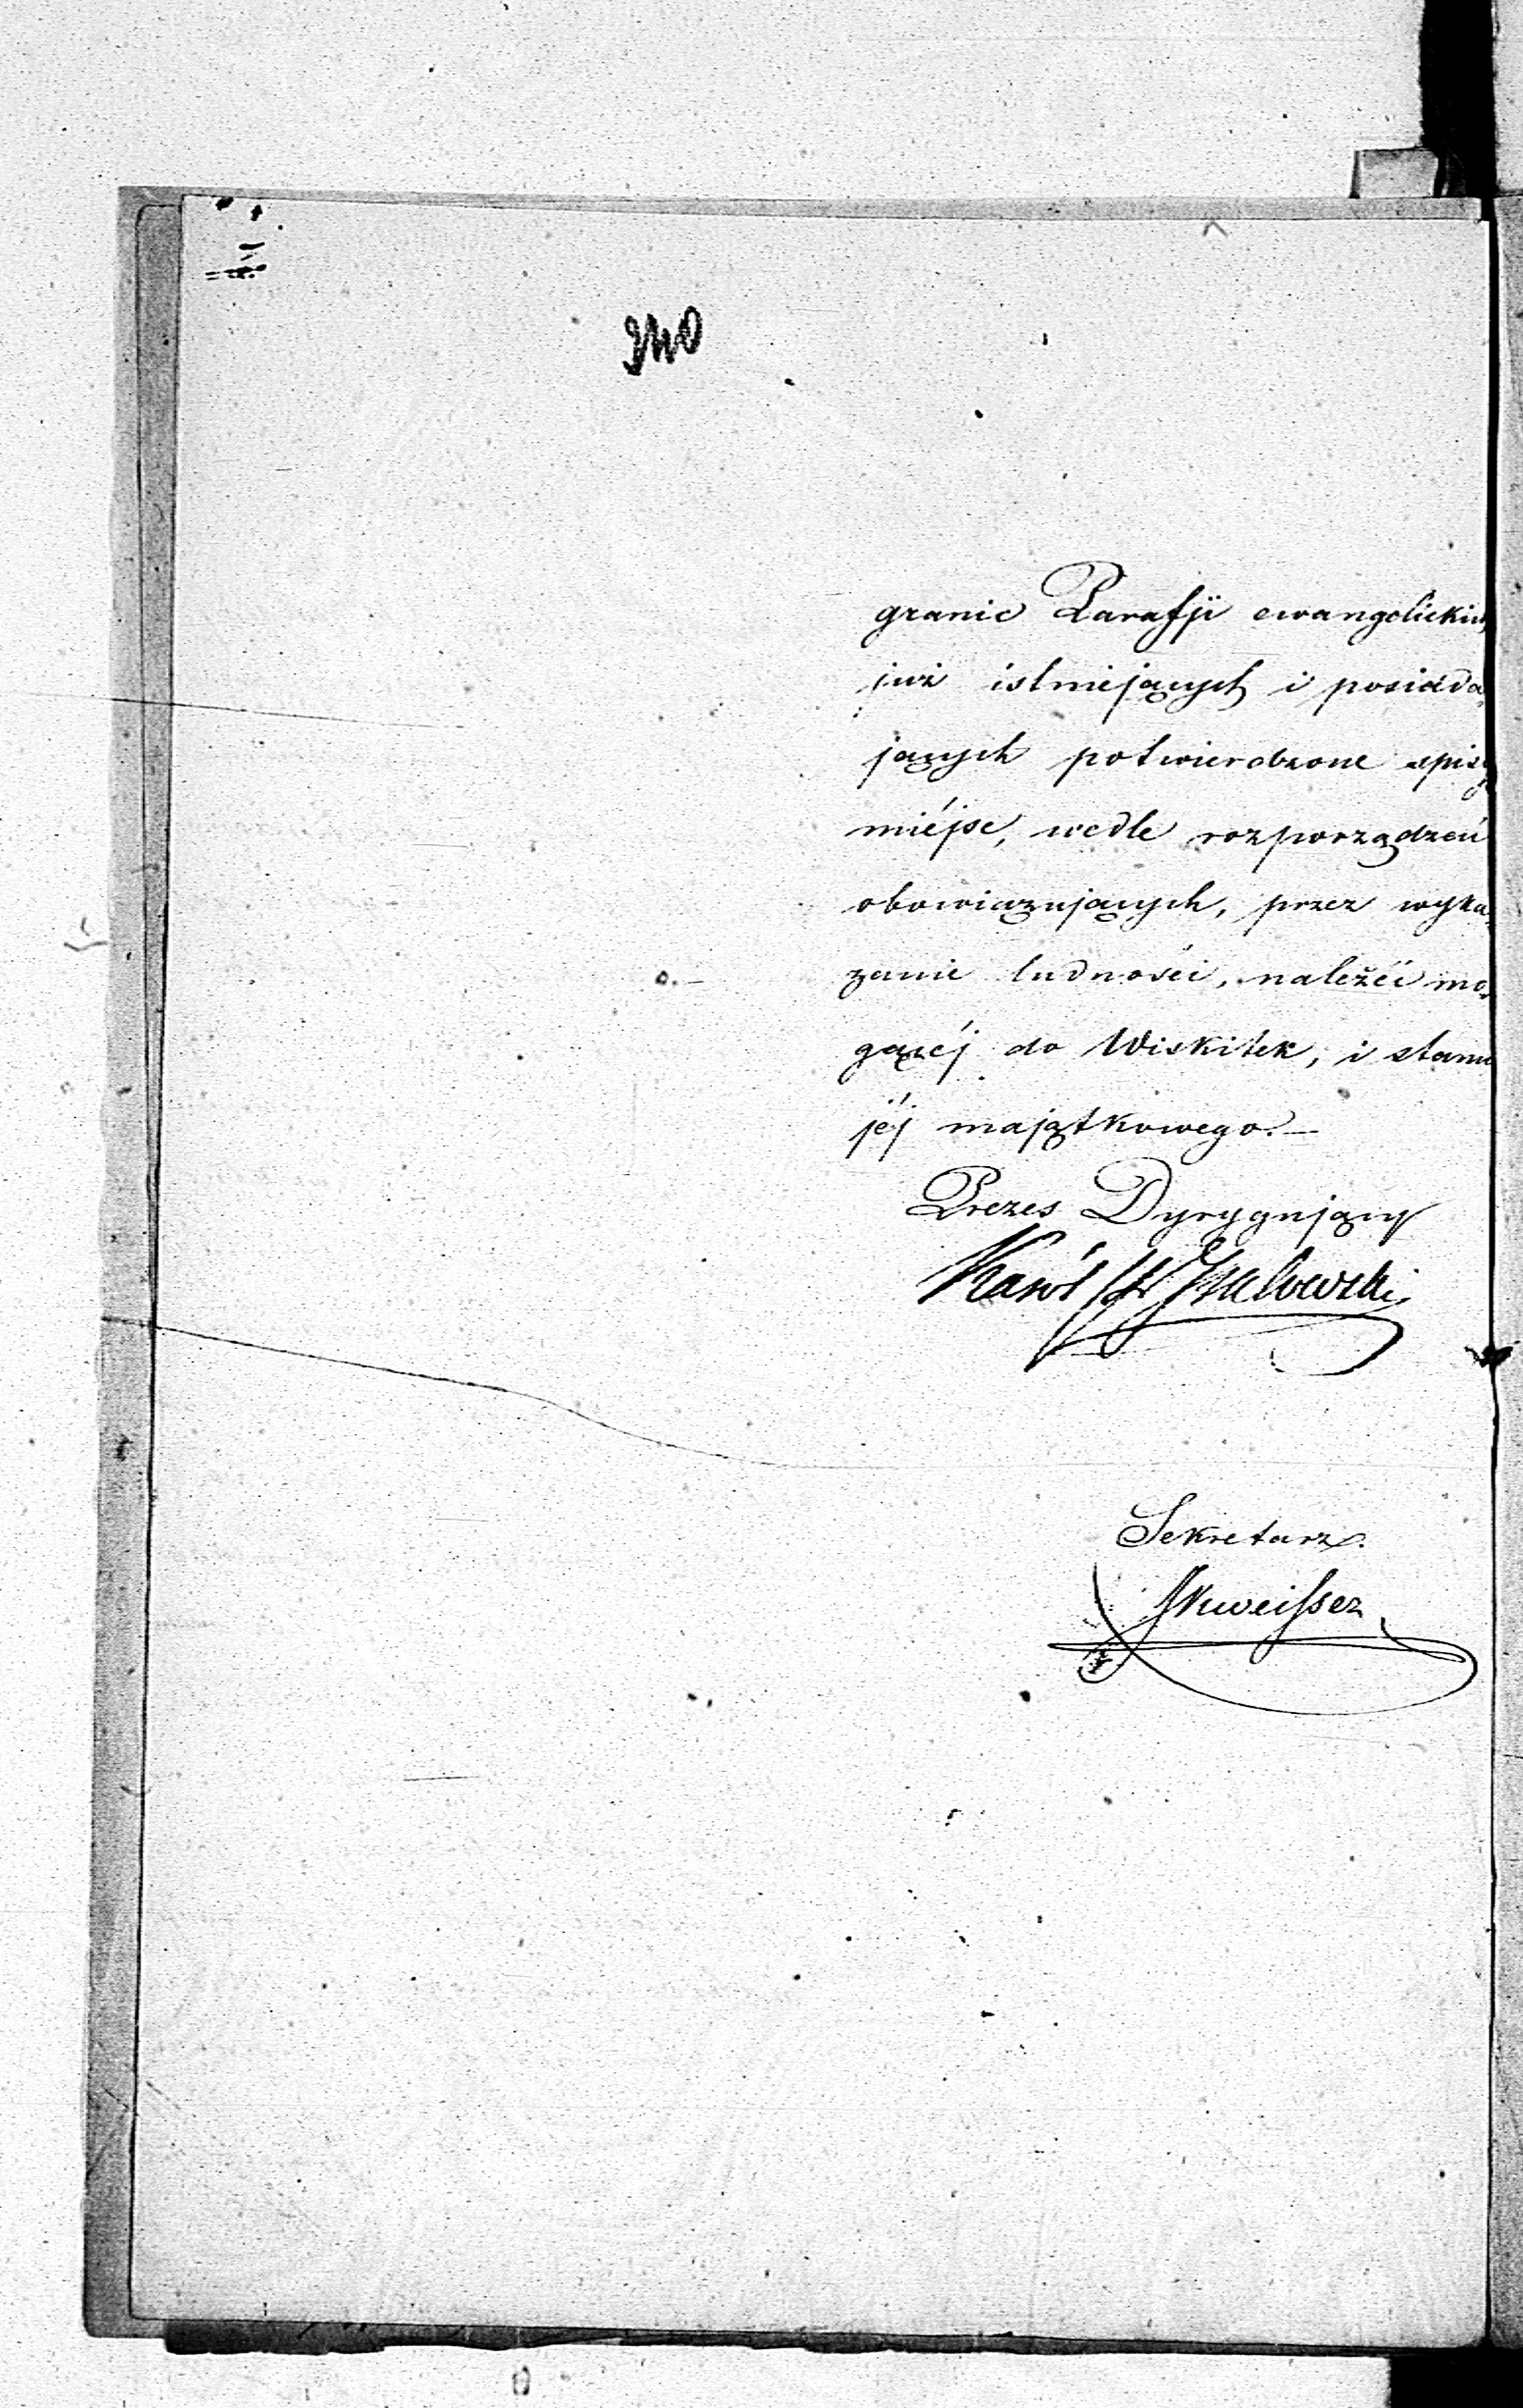 340
granic Parafji ewangelickich
już istniejących i posiada-
jących potwierdzone spisy
miéjsc, wedle rozporządzeń
obowiązujących, przez wyka-
zanie ludności, należéć mo-
gącéj do Wiskitek, i stanu
jéj majątkowego.—
Prezes Dyrygujący
Karól
Sekretarz.